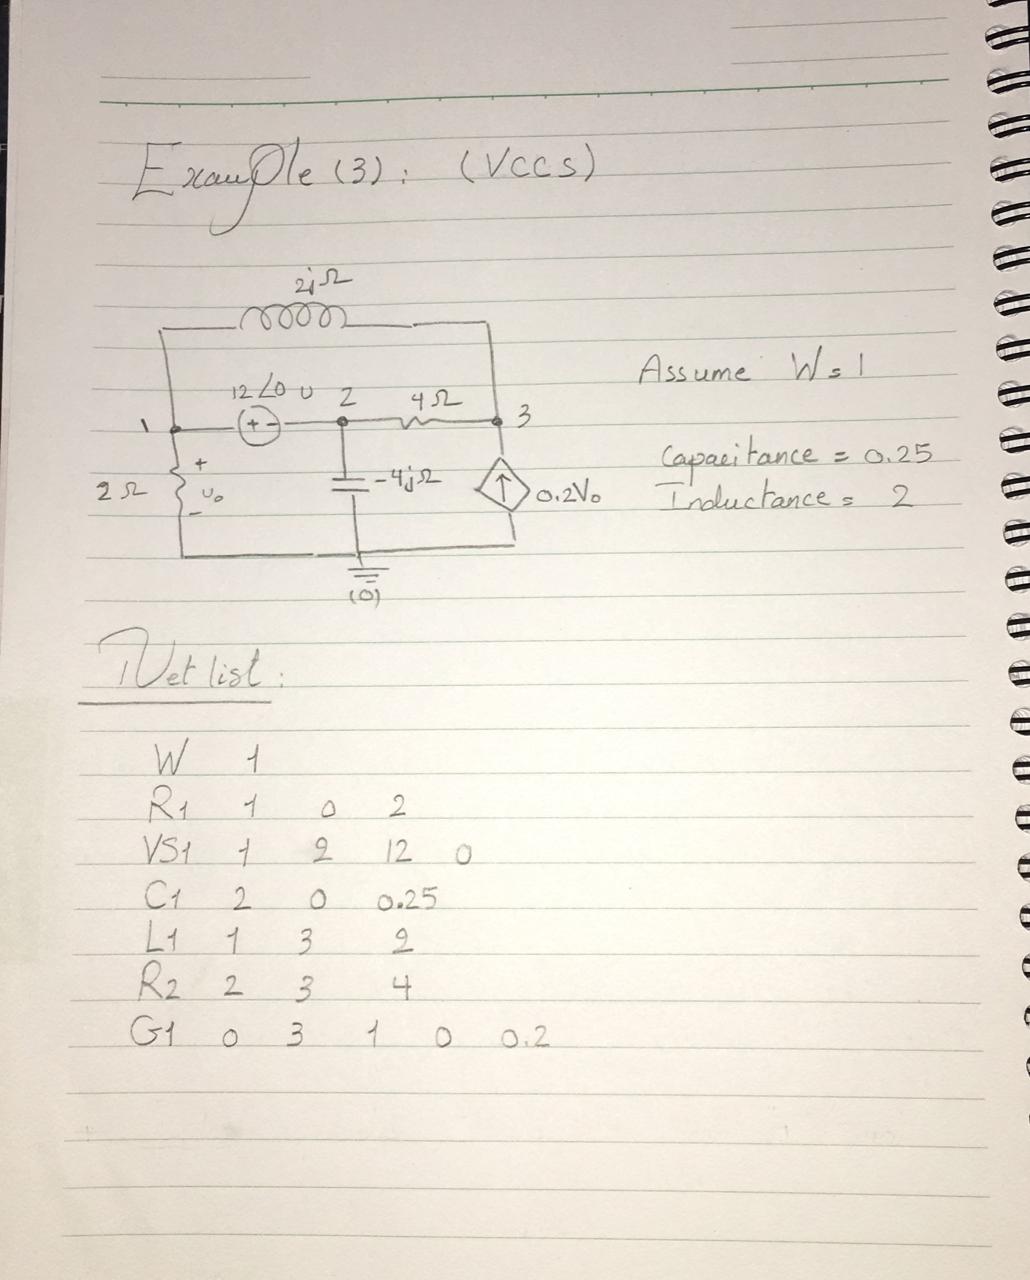 Example (3): (VCCS)
2jΩ
12∠0 v
2
4Ω
1
3
Assume W=1
2Ω
+
vo
-
-4jΩ
0.2Vo
Capacitance = 0.25
Inductance = 2
(0)
Net list:
W 1
R1 1 0 2
VS1 1 2 12 0
C1 2 0 0.25
L1 1 3 2
R2 2 3 4
G1 0 3 1 0 0.2